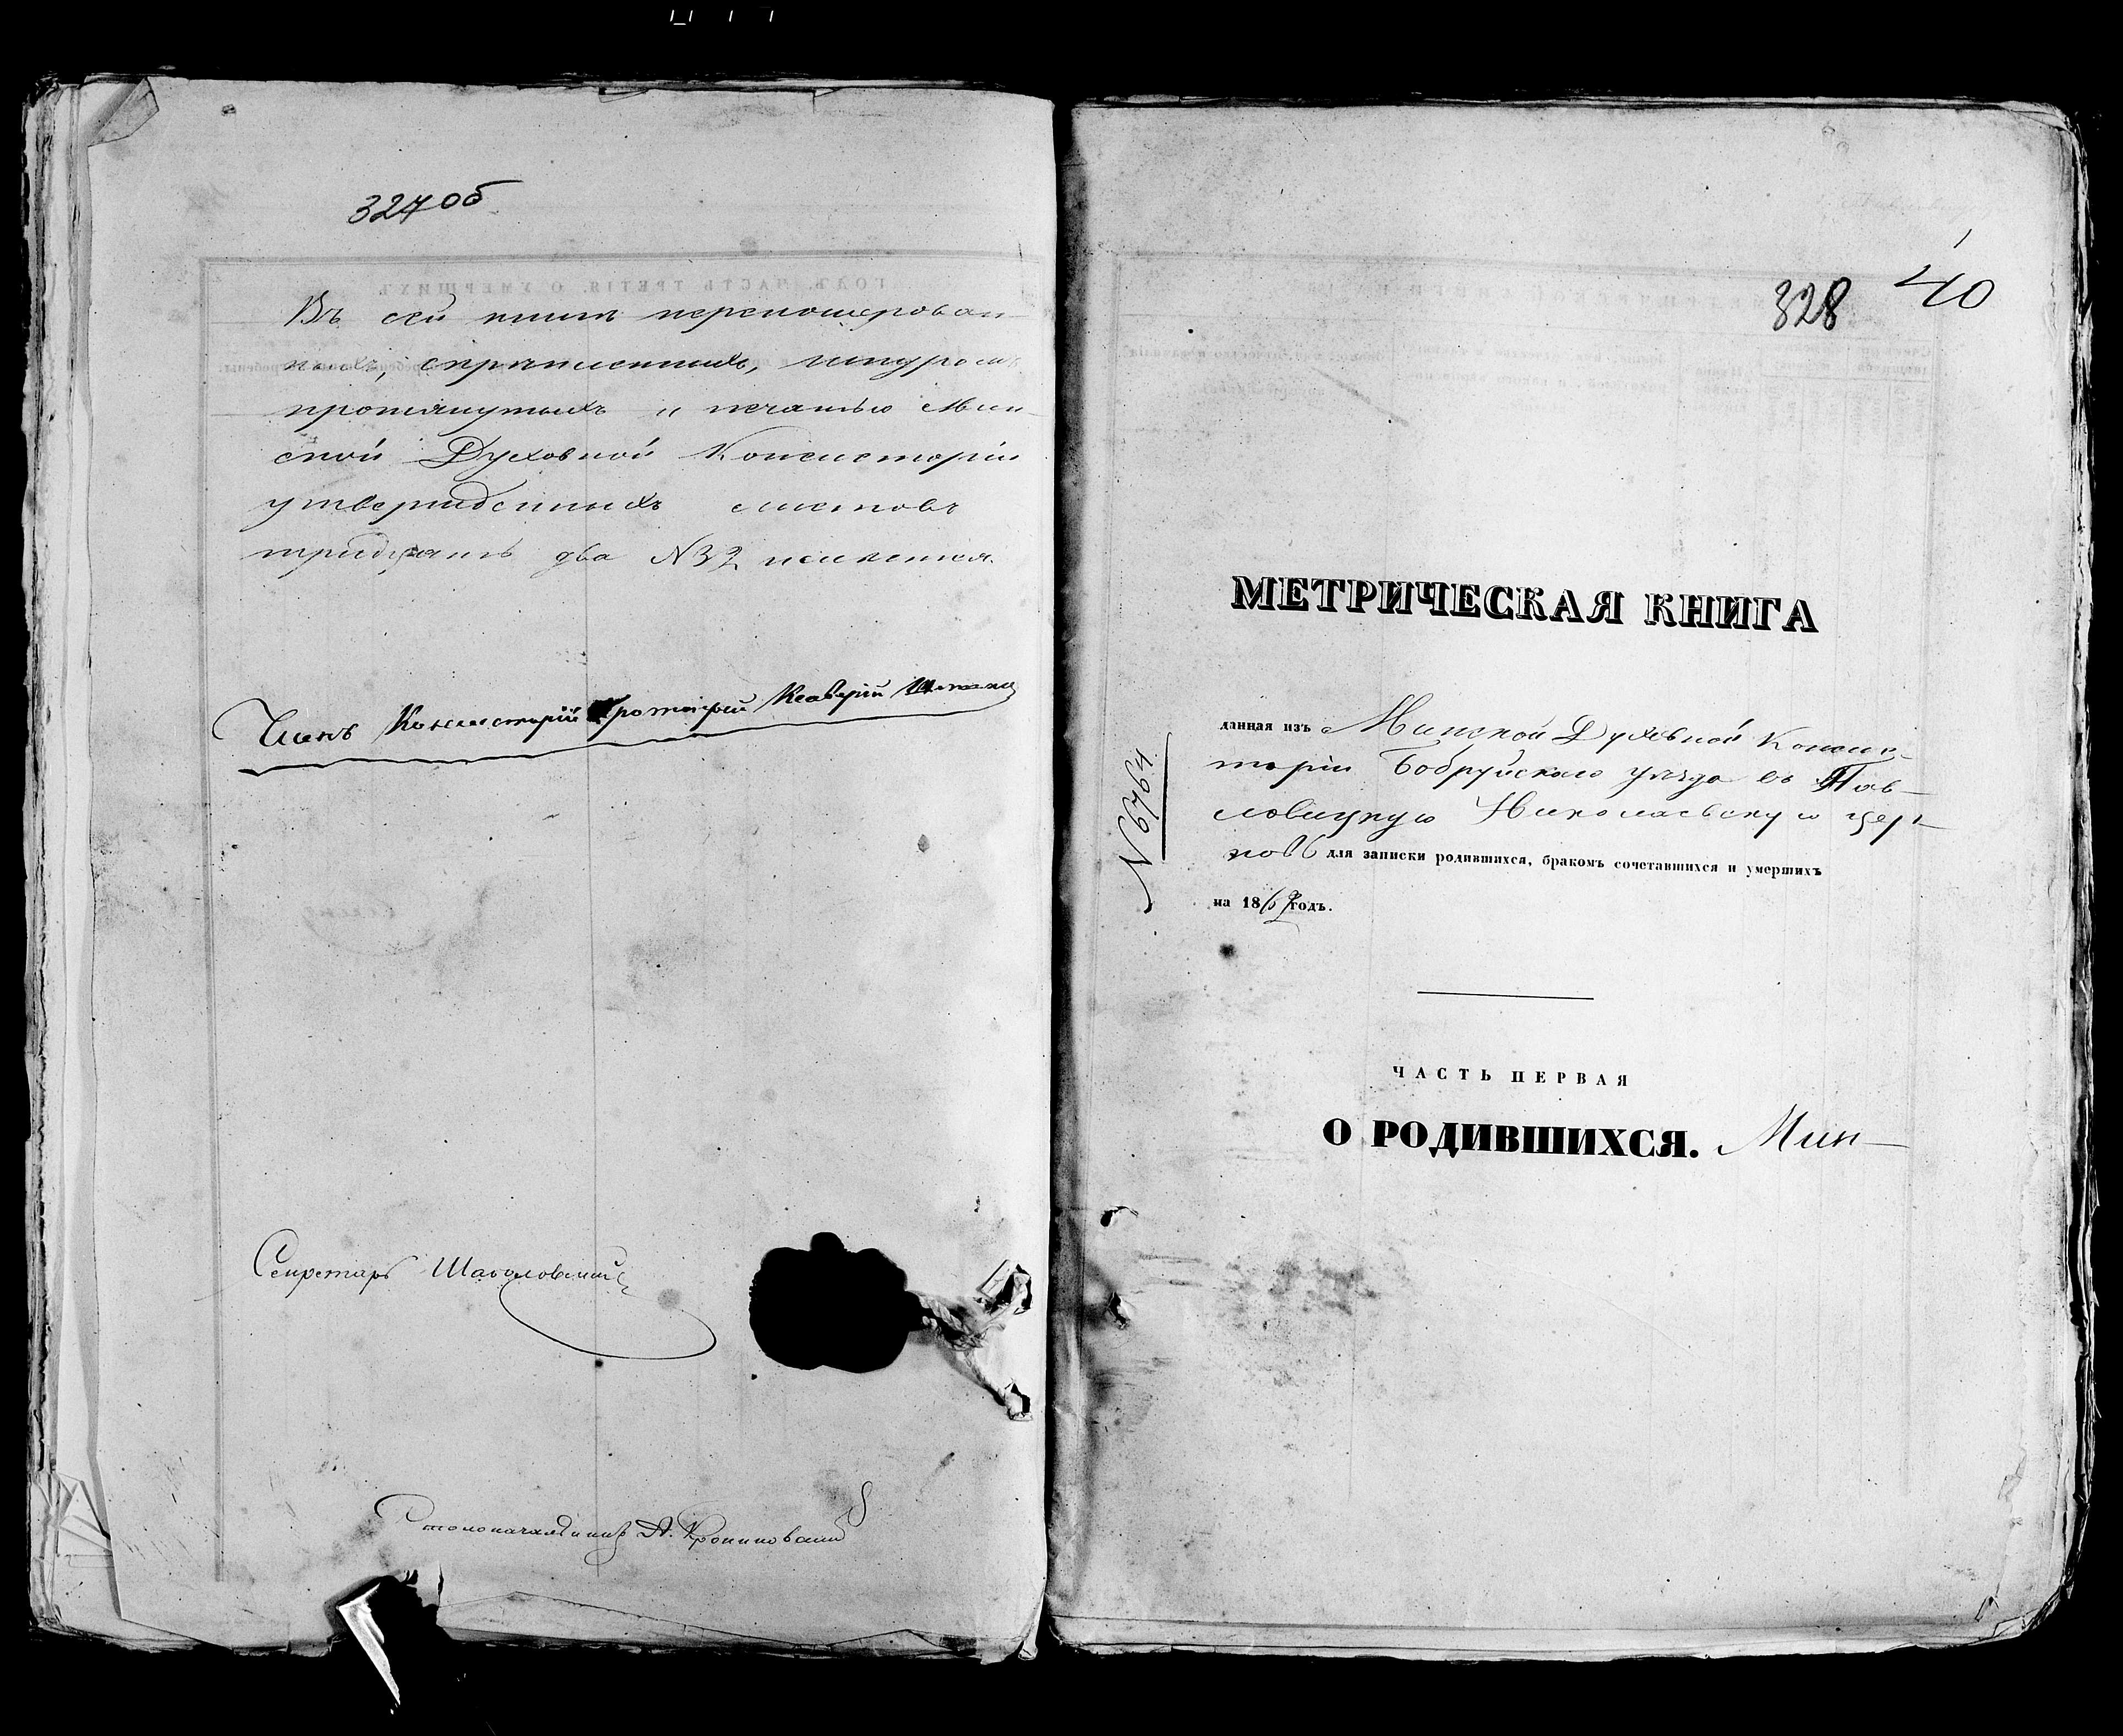 327об
Въ сей книгѣ перенумерован-
ныхъ, скрѣпленныхъ, шнуромъ
протянутыхъ и печатью Мин-
ской Духовной Консисторіи
утвержденныхъ листовъ
тридцать два №32 имѣется.
Членъ Консисторіи Протоіерей Ксаверій
Секретарь
Столоначальникъ А.
328 40
МЕТРИЧЕСКАЯ КНИГА
данная изъ Минской Духовной Консис-
торіи Бобруйскаго уѣзда въ Пав-
ловицкую Николаевскую цер-
ковь для записки родившихся, бракомъ сочетавшихся и умершихъ
на 186 годъ.
№6764
ЧАСТЬ ПЕРВАЯ
О РОДИВШИХСЯ. Мин-